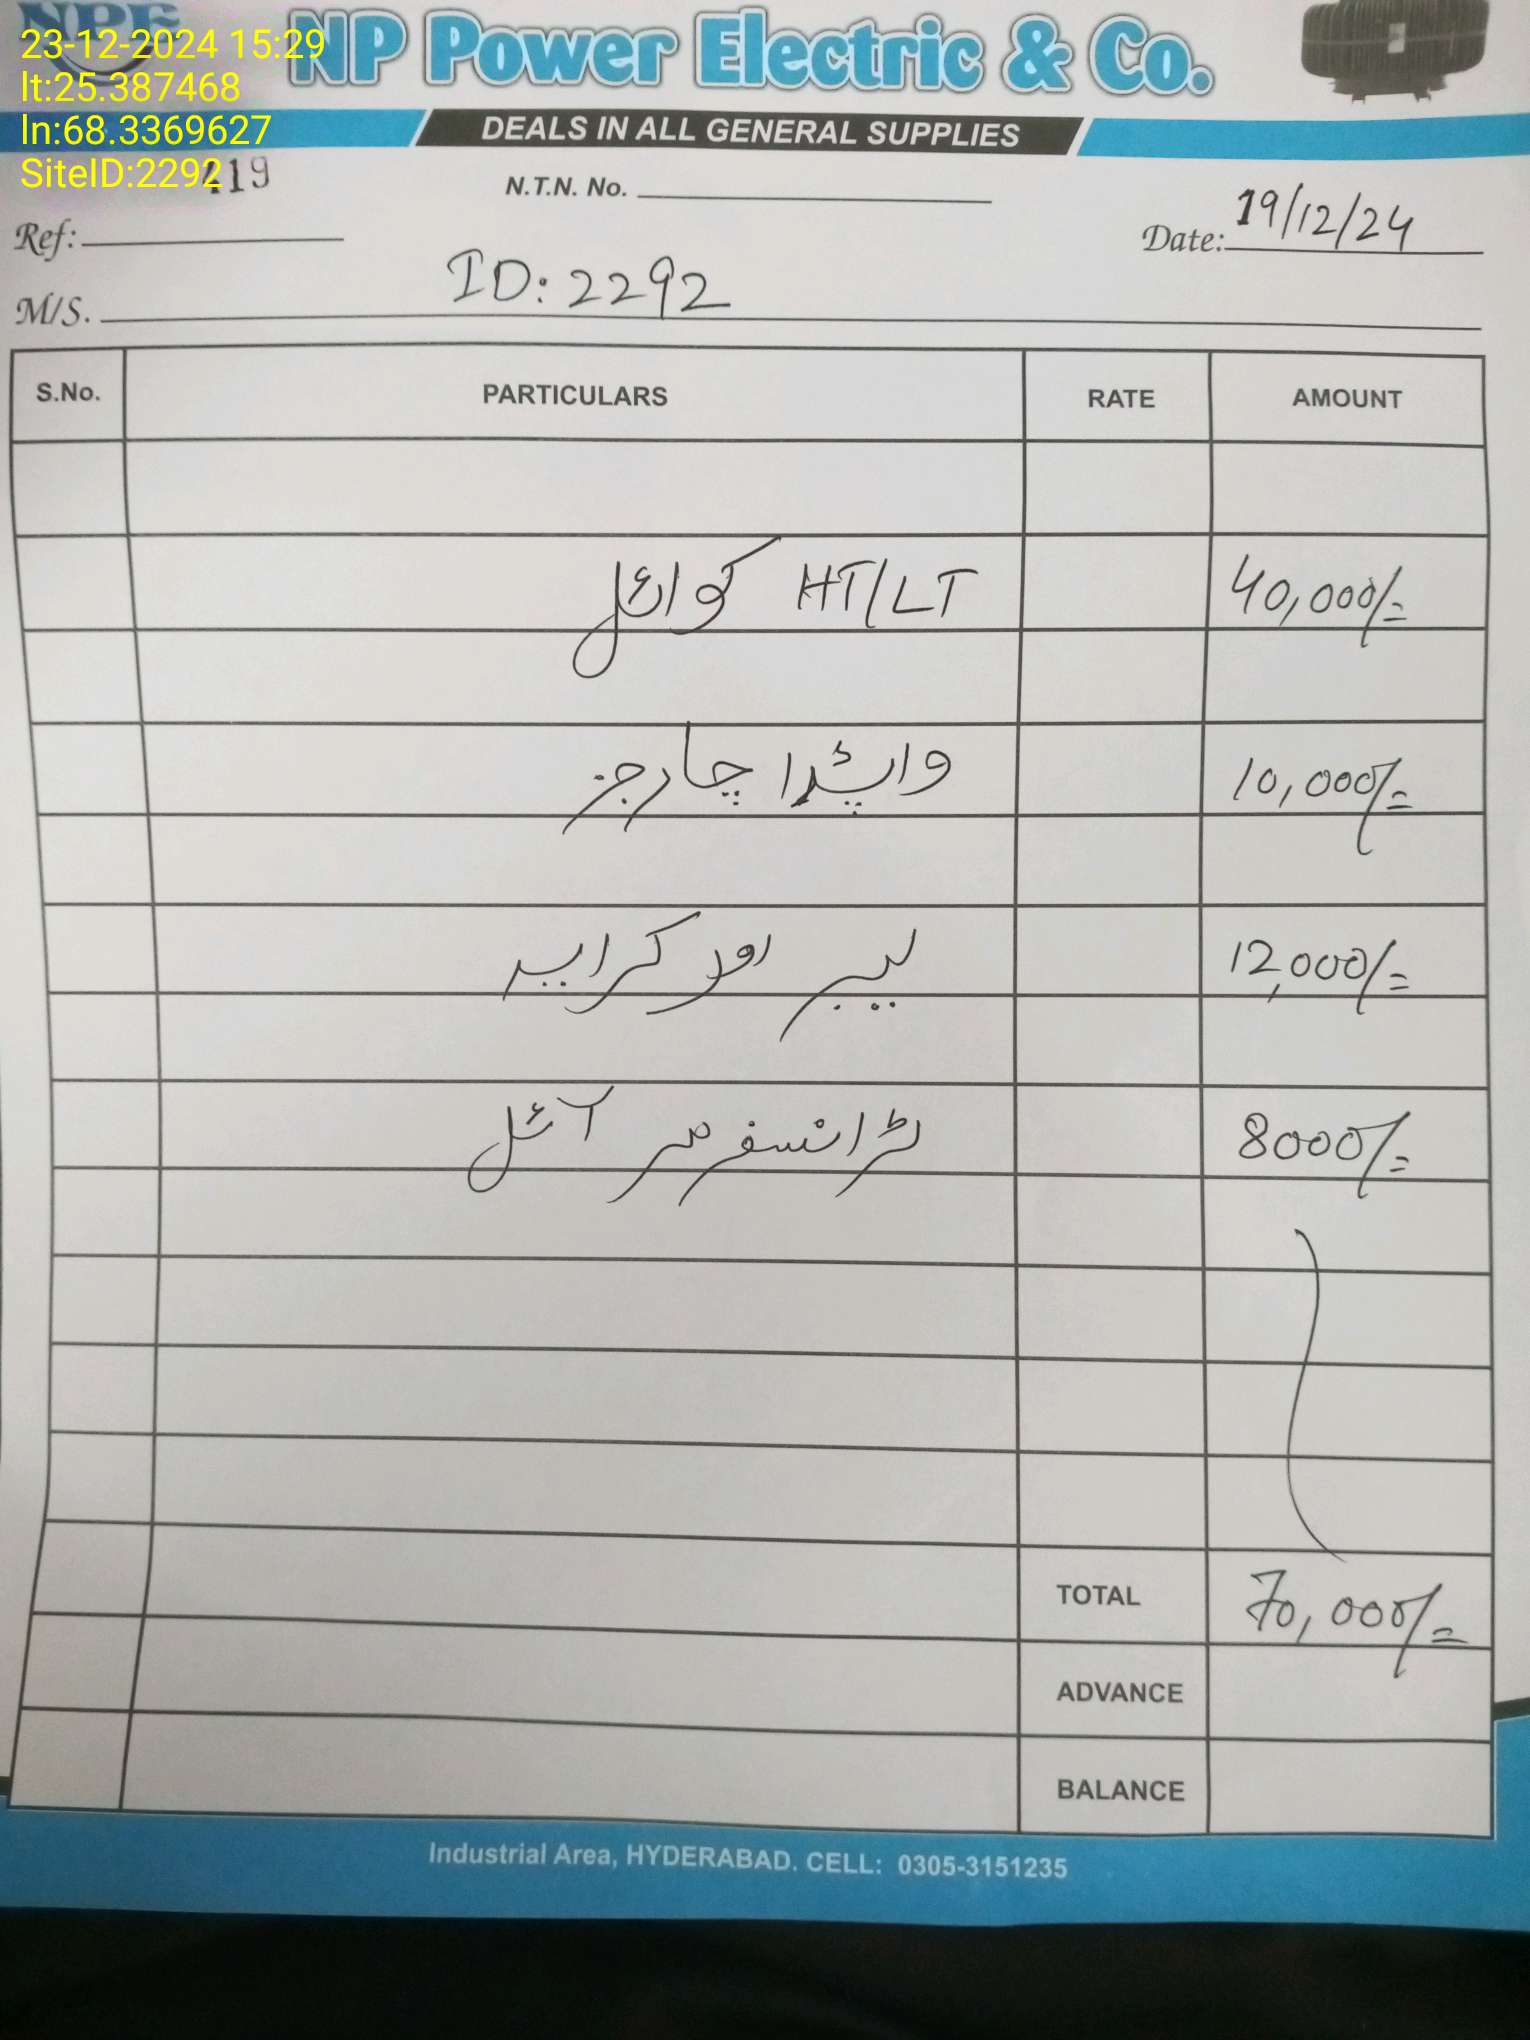 NPE
23-12-2024 15:29
NP Power Electric & Co.
lt:25.387468
ln:68.3369627
DEALS IN ALL GENERAL SUPPLIES
SiteID:2292
419
N.T.N. No.
Ref:
Date: 19/12/24
M/S. ID: 2292
S.No. PARTICULARS RATE AMOUNT
HT/LT کوائل 40,000/=
واپڈا چارجز 10,000/=
لیبر اور کرایہ 12,000/=
ٹرانسفرمر آئل 8000/=
TOTAL 70,000/=
ADVANCE
BALANCE
Industrial Area, HYDERABAD. CELL: 0305-3151235